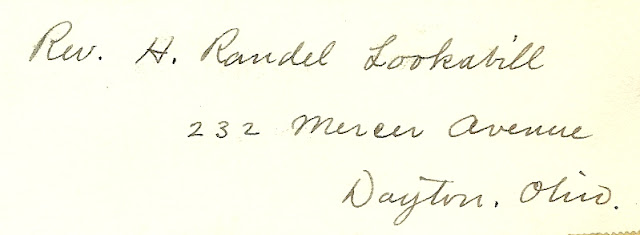 Rev. H. Randel Lookabill
232 Mercer Avenue
Dayton, Ohio.